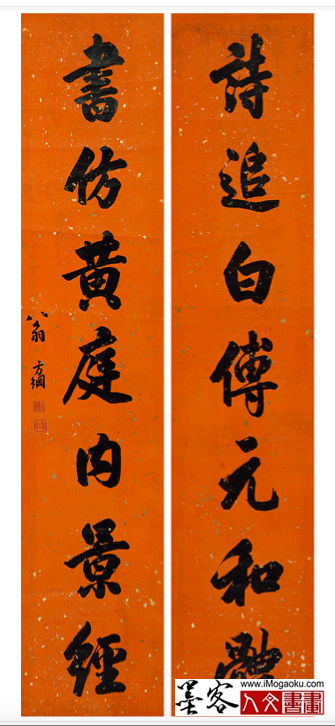 詩追白傅元和
書仿黄庭内景經
翁方綱
墨客
www.iMogaoku.com
人文書畫